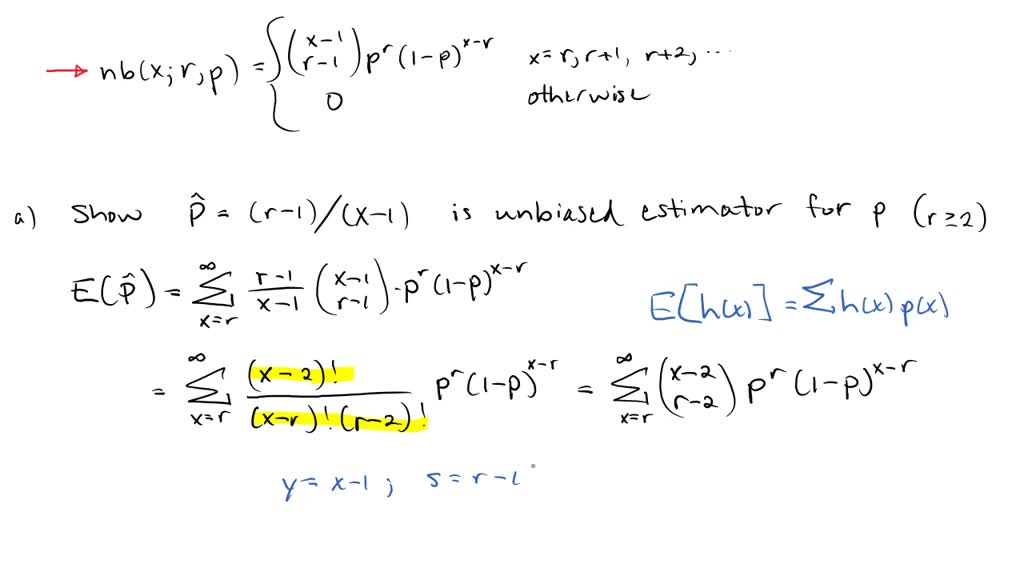 → nb(x; r, p) = { \binom{x-1}{r-1} p^r (1-p)^{x-r}   x = r, r+1, r+2, ...
0   otherwise
a) Show \hat{p} = (r-1)/(X-1) is unbiased estimator for p (r ≥ 2)
E(\hat{p}) = \sum_{x=r}^{∞} \frac{r-1}{x-1} \binom{x-1}{r-1} · p^r (1-p)^{x-r}
E[h(x)] = Σ h(x) p(x)
= \sum_{x=r}^{∞} \frac{(x-2)!}{(x-r)! (r-2)!} p^r (1-p)^{x-r} = \sum_{x=r}^{∞} \binom{x-2}{r-2} p^r (1-p)^{x-r}
y = x-1 ; s = r-1